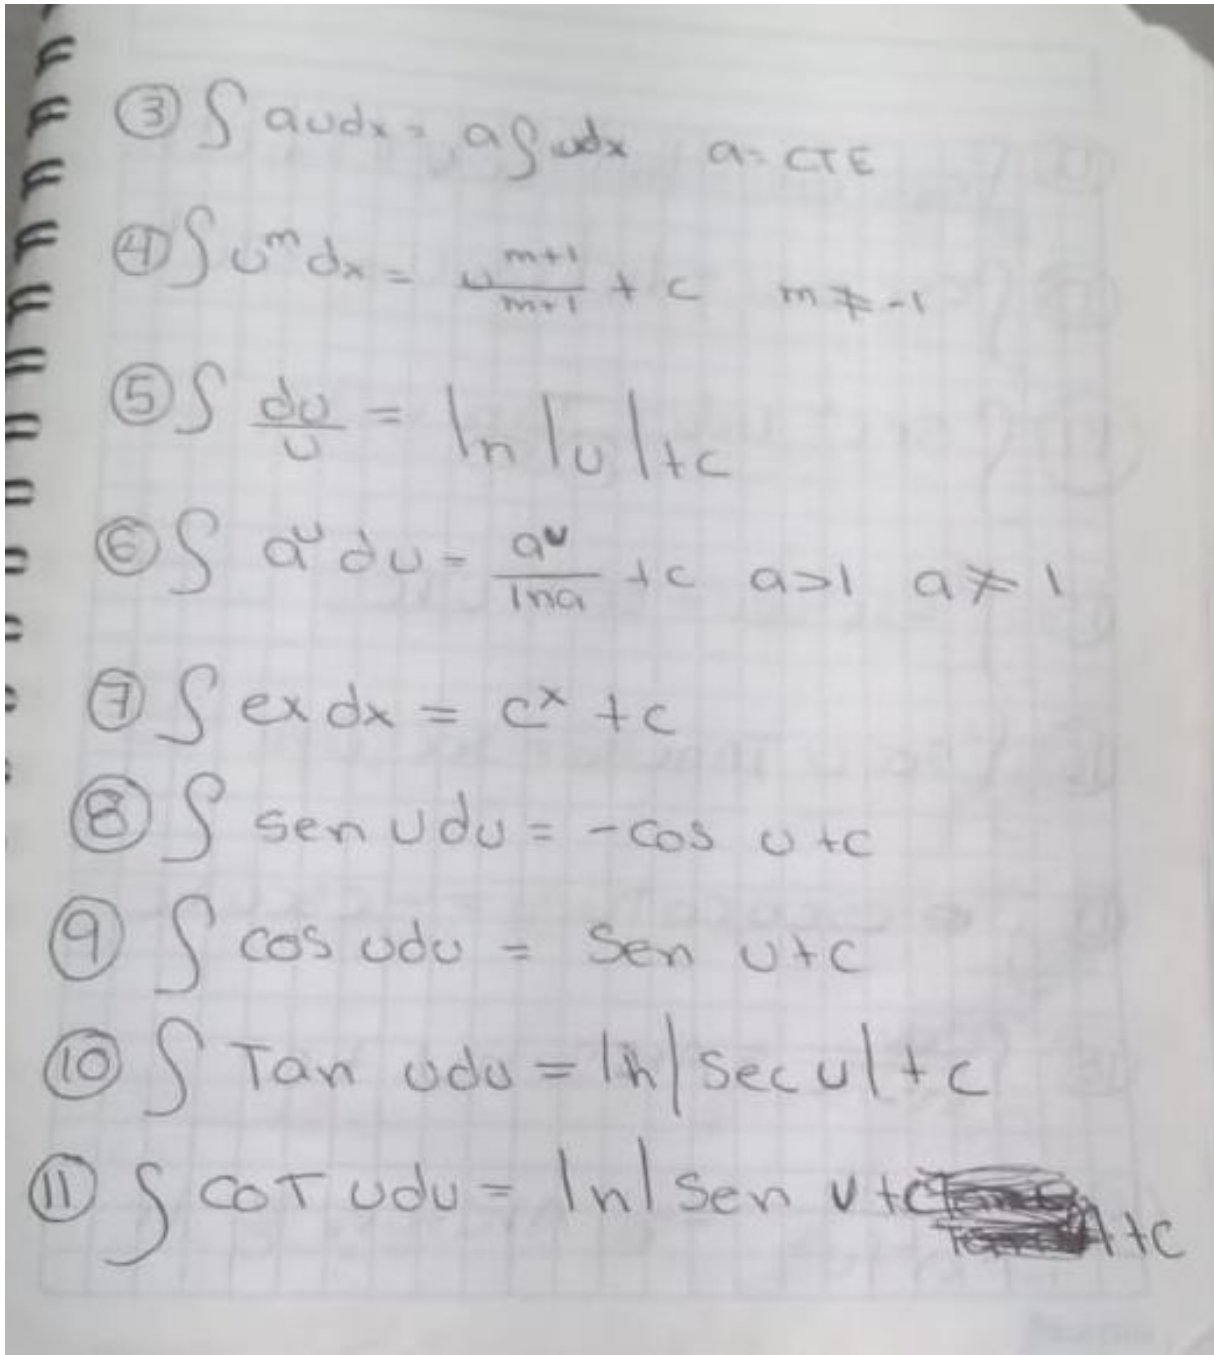 ③ ∫ audx = a∫udx a = CTE
④ ∫ u^m dx = u^(m+1)/(m+1) + c m ≠ -1
⑤ ∫ du/u = ln |u| + c
⑥ ∫ a^u du = a^u/lna + c a>1 a ≠ 1
⑦ ∫ ex dx = c^x + c
⑧ ∫ sen u du = -cos u + c
⑨ ∫ cos u du = Sen u + c
⑩ ∫ Tan u du = ln |sec u| + c
⑪ ∫ COT u du = ln | sen u + c + c